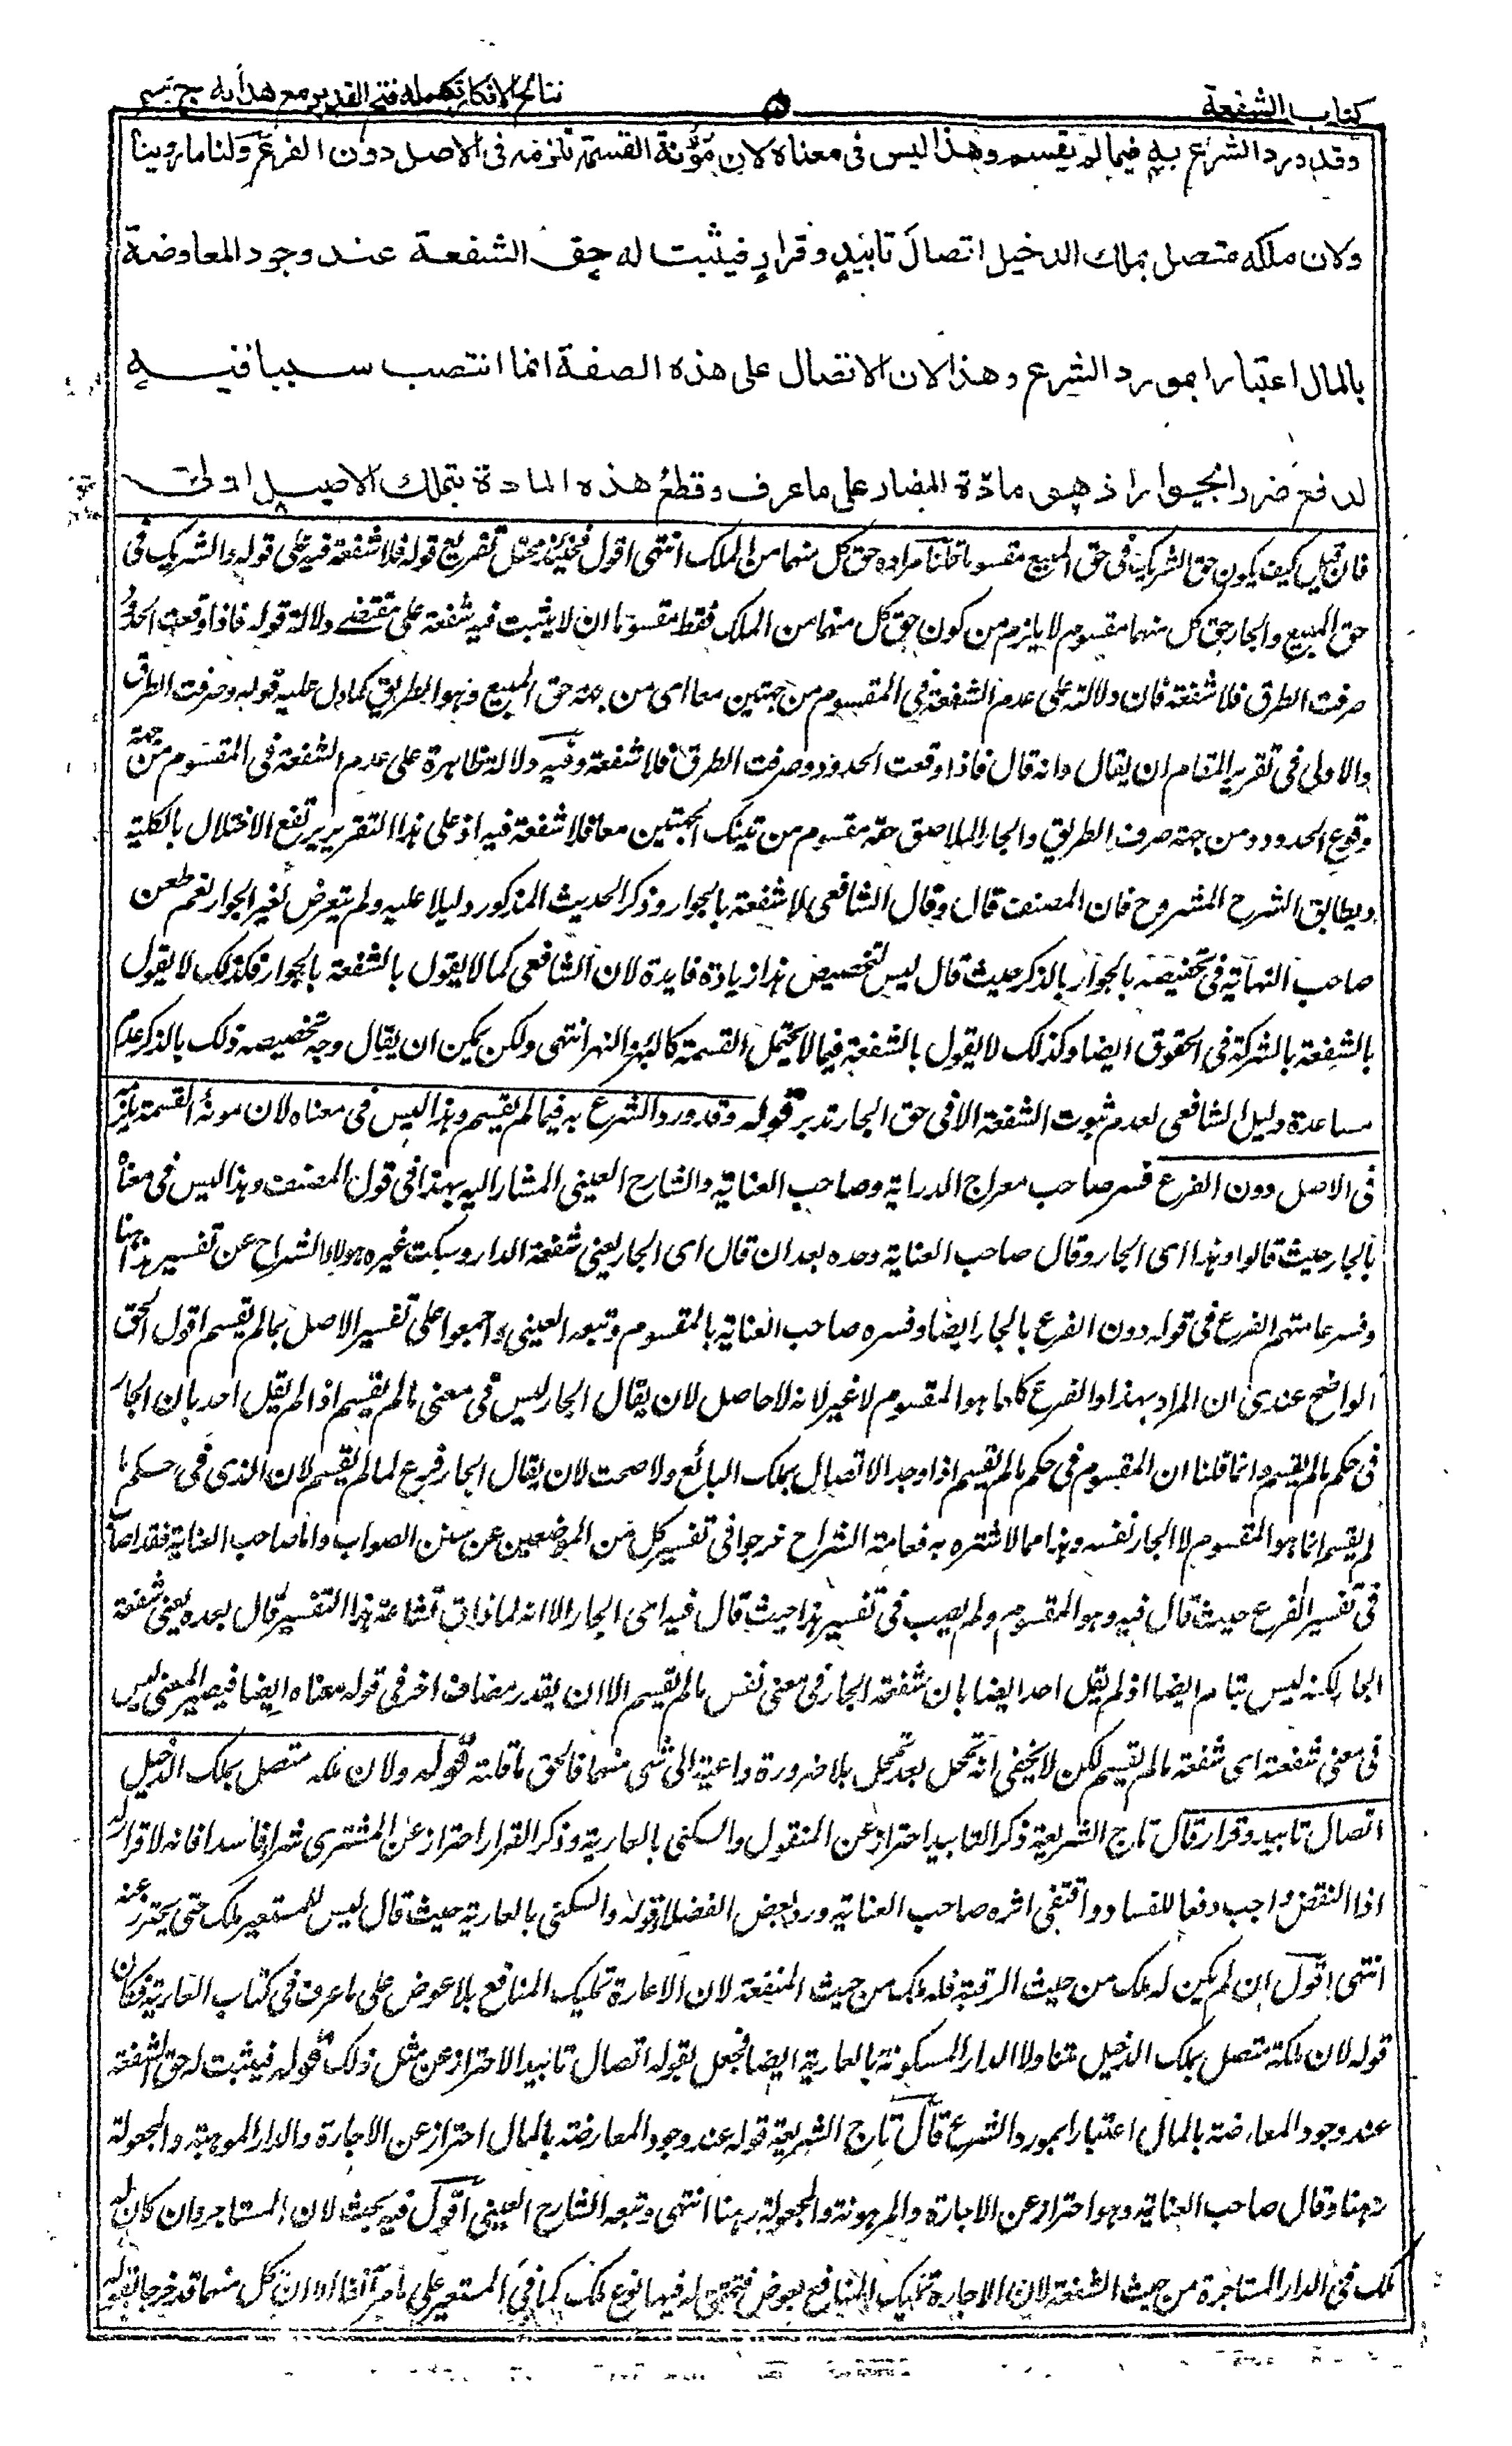 كتاب الشفعة
٥
نتائج الافكار تكمله فتح القدير مع هدايه ج
وقد ورد الشرع به فيما لم يقسم وهذا ليس فى معناه لان مؤنة القسمة تلزمه فى الاصل دون الفرع ولنا ما روينا
ولان ملكه متصل بملك الدخيل اتصال تابيد وقرار فيثبت له حق الشفعة عند وجود المعاوضة
بالمال اعتبارا بمورد الشرع وهذا لان الاتصال على هذه الصفة انما انتصب سببا فيه
لدفع ضرر الجوار اذ هو مادّة المضار على ما عرف وقطع هذه المادة بتملك الاصيل اولى
فان قيل كيف يكون حق الشريك فى حق المبيع مقسوما قلنا مراده حق كل منهما من الملك انتهى اقول فحينئذ يختل تفريع قوله فلا شفعة فيه على قوله والشريك فى
حق المبيع والجار حق كل منهما مقسوم لا يلزم من كون حق كل منهما من الملك فقط مقسوما ان لا يثبت فيه شفعة على مقتضى دلالة قوله فاذا وقعت الحدود
صرفت الطرق فلا شفعة فان دلالته على عدم الشفعة فى المقسوم من جهتين معا اى من جهة حق المبيع وهو الطريق كما دل عليه قوله وصرفت الطرق
والاولى فى تقرير المقام ان يقال وانه قال فاذا وقعت الحدود وصرفت الطرق فلا شفعة وفيه دلالة ظاهرة على عدم الشفعة فى المقسوم من جهة
وقوع الحدود ومن جهة صرف الطريق والجار الملاصق حقه مقسوم من تينك الجهتين معا فلا شفعة فيه اذ على هذا التقرير يرتفع الاختلال بالكلية
ويطابق الشرح المشروح فان المصنف قال وقال الشافعى لا شفعة بالجوار وذكر الحديث المذكور دليلا عليه ولم يتعرض لغير الجوار نعم طعن
صاحب النهاية فى تخصيصه بالجوار بالذكر حيث قال ليس لتخصيص هذا زيادة فايدة لان الشافعى كما لا يقول بالشفعة بالجوار فكذلك لا يقول
بالشفعة بالشركة فى الحقوق ايضا وكذلك لا يقول بالشفعة فيما لا يحتمل القسمة كالبئر والنهر انتهى ولكن يمكن ان يقال وجه تخصيصه ذلك بالذكر عدم
مساعدة دليل الشافعى لعدم ثبوت الشفعة الا فى حق الجار تدبر قوله وقد ورد الشرع به فيما لم يقسم وهذا ليس فى معناه لان مونة القسمة تلزمه
فى الاصل دون الفرع فسر صاحب معراج الدراية وصاحب العناية والشارح العينى المشار اليه بهذا فى قول المصنف وهذا ليس فى معناه
بالجار حيث قالوا وهذا اى الجار وقال صاحب العناية وحده بعد ان قال اى الجار يعنى شفعة الدار وسكت غيره هولاء الشراح عن تفسير هذا ههنا
وفسر عامتهم الفرع فى قوله دون الفرع بالجار ايضا وفسره صاحب العناية بالمقسوم وتبعه العينى واجمعوا على تفسير الاصل بما لم يقسم اقول الحق
الواضح عندى ان المراد بهذا والفرع كلاهما هو المقسوم لا غير لانه لا حاصل لان يقال الجار ليس فى معنى ما لم يقسم اذ لم يقل احد بان الجار
فى حكم ما لم يقسم وانما قلنا ان المقسوم فى حكم ما لم يقسم اذا وجد الاتصال بملك البائع ولا صحت لان يقال الجار فرع لما لم يقسم لان الذى فى حكم ما
لم يقسم انما هو المقسوم لا الجار نفسه وهذا مما لا سترة به فعامة الشراح خرجوا فى تفسير كل من الموضعين عن سنن الصواب واما صاحب العناية فقد اصاب
فى تفسير الفرع حيث قال فيه وهو المقسوم ولم يصب فى تفسير هذا حيث قال فيه اى الجار الا انه لما ذاق بشاعة هذا التفسير قال بعده يعنى شفعة
الجار لكنه ليس بتام ايضا اذ لم يقل احد ايضا بان شفعة الجار فى معنى نفس ما لم يقسم الا ان يقدر مضاف اخر فى قوله معناه ايضا فيصير المعنى ليس
فى معنى شفعته اى شفعة ما لم يقسم لكن لا يخفى انه تمحل بعد تمحل بلا ضرورة داعية الى شى منهما فالحق ما قلته قوله ولان ملكه متصل بملك الدخيل
اتصال تابيد وقرار قال تاج الشريعة ذكر التابيد احتراز عن المنقول والسكنى بالعارية وذكر القرار احتراز عن المشترى شراء فاسدا فانه لا قرار له
اذا النقض واجب دفعا للفساد واقتفى اثره صاحب العناية ورد بعض الفضلاء قوله والسكنى بالعارية حيث قال ليس للمستعير ملك حتى يحترز عنه
انتهى اقول ان لم يكن له ملك من حيث الرقبة فله ملك من حيث المنفعة لان الاعارة تمليك المنافع بلا عوض على ما عرف فى كتاب العارية فكان
قوله لان ملكه متصل بملك الدخيل متناولا الدار المسكونة بالعارية ايضا فجعل بقوله اتصال تابيد الاحتراز عن مثل ذلك قوله فيثبت له حق الشفعة
عند وجود المعاوضة بالمال اعتبارا بمورد الشرع قال تاج الشريعة قوله عند وجود المعارضة بالمال احتراز عن الاجارة والدار الموهبة والمجعولة
رهنا وقال صاحب العناية وهو احتراز عن الاجارة والمرهونة والمجعولة رهنا انتهى وتبعه الشارح العينى اقول فيه بحث لان المستاجر وان كان له
ملك فى الدار المستاجرة من حيث الشفعة لان الاجارة تمليك المنافع بعوض فتحقق له فيها نوع ملك كما فى المستعير على ما مر آنفا الا ان كل منهما قد خرجا بقوله